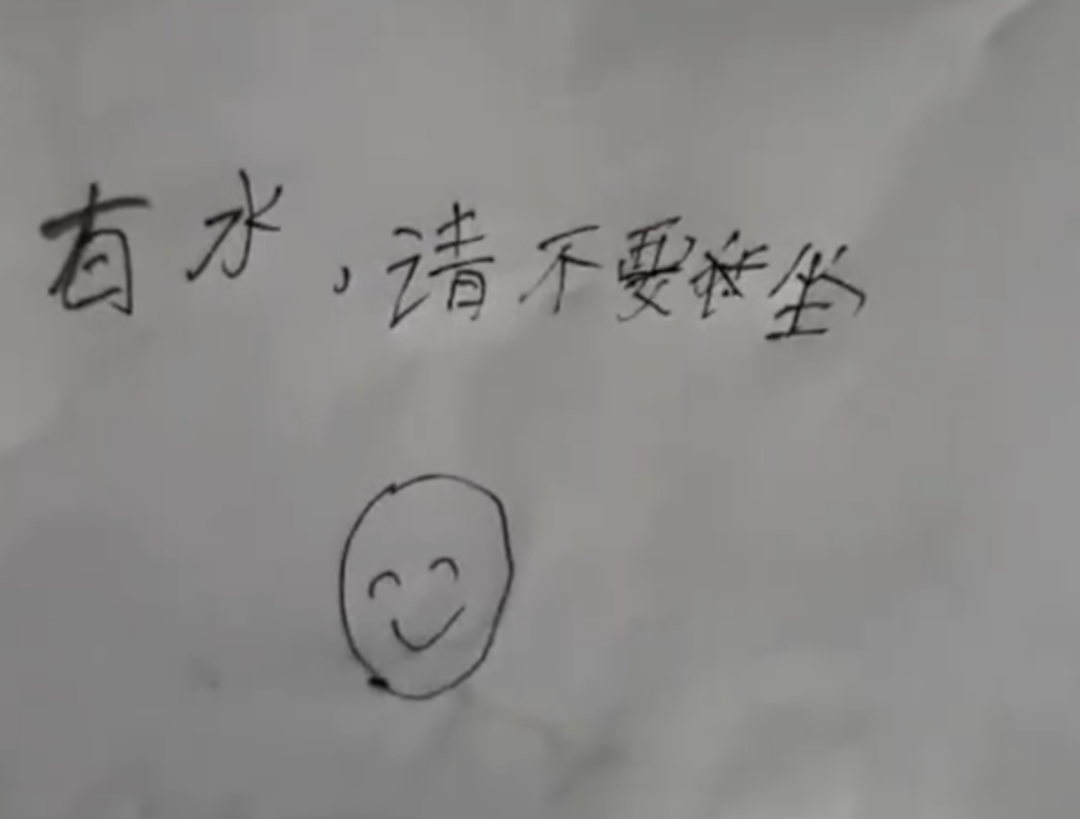 有水，请不要坐